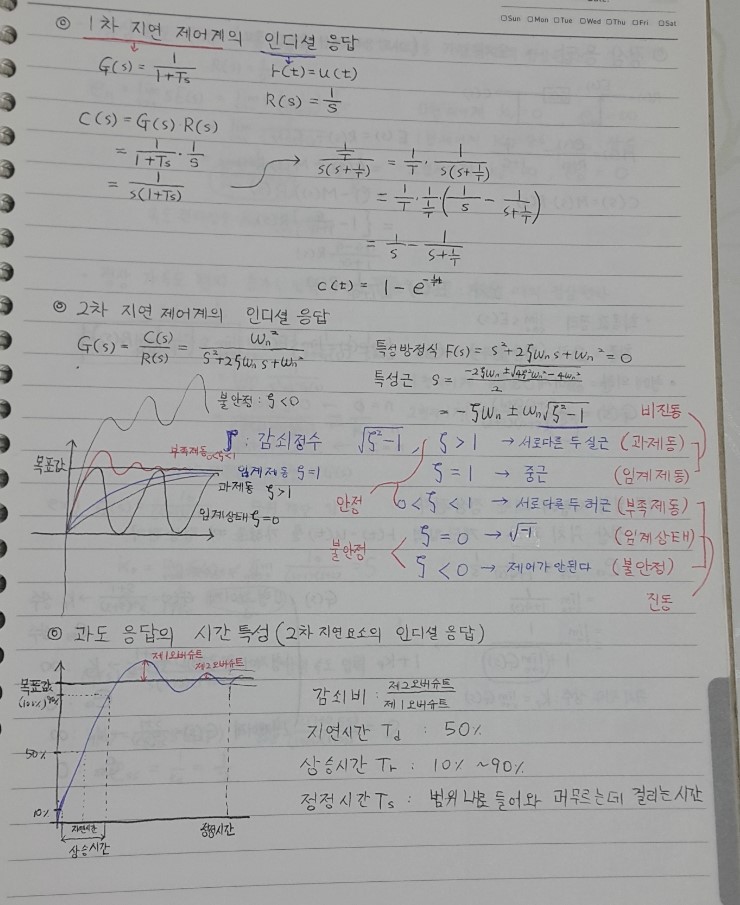 □Sun □Mon □Tue □Wed □Thu □Fri □Sat
◎ 1차 지연 제어계의 인디셜 응답
G(s) = 1/(1+Ts)   r(t) = u(t)
R(s) = 1/s
C(s) = G(s) R(s)
= 1/(1+Ts) · 1/s → (1/T)/(s(s+1/T)) = 1/T · 1/(s(s+1/T))
= 1/(s(1+Ts))   = 1/T · 1/(1/T) · (1/s - 1/(s+1/T))
= 1/s - 1/(s+1/T)
c(t) = 1 - e^(-1/T t)
◎ 2차 지연 제어계의 인디셜 응답
G(s) = C(s)/R(s) = ωn²/(s²+2ζωn s+ωn²)   특성방정식 F(s) = s²+2ζωn s+ωn² = 0
특성근 s = (-2ζωn ± √(4ζ²ωn²-4ωn²))/2
= -ζωn ± ωn√(ζ²-1)
불안정: ζ<0
비진동
ζ : 감쇠정수   √(ζ²-1), ζ > 1 → 서로다른 두 실근 (과제동)
목표값
부족제동 0<ζ<1
임계제동 ζ=1
과제동 ζ>1
임계상태 ζ=0
ζ = 1 → 중근 (임계제동)
안정
0 < ζ < 1 → 서로다른 두 허근 (부족제동)
불안정
ζ = 0 → √-1 (임계상태)
ζ < 0 → 제어가 안된다 (불안정)
진동
◎ 과도 응답의 시간 특성 (2차 지연요소의 인디셜 응답)
제1오버슈트
제2오버슈트
목표값
(100%) 90%
50%
10%
지연시간
상승시간
정정시간
감쇠비 : 제2오버슈트/제1오버슈트
지연시간 Td : 50%
상승시간 Tr : 10% ~90%
정정시간 Ts : 범위 내로 들어와 머무르는데 걸리는 시간